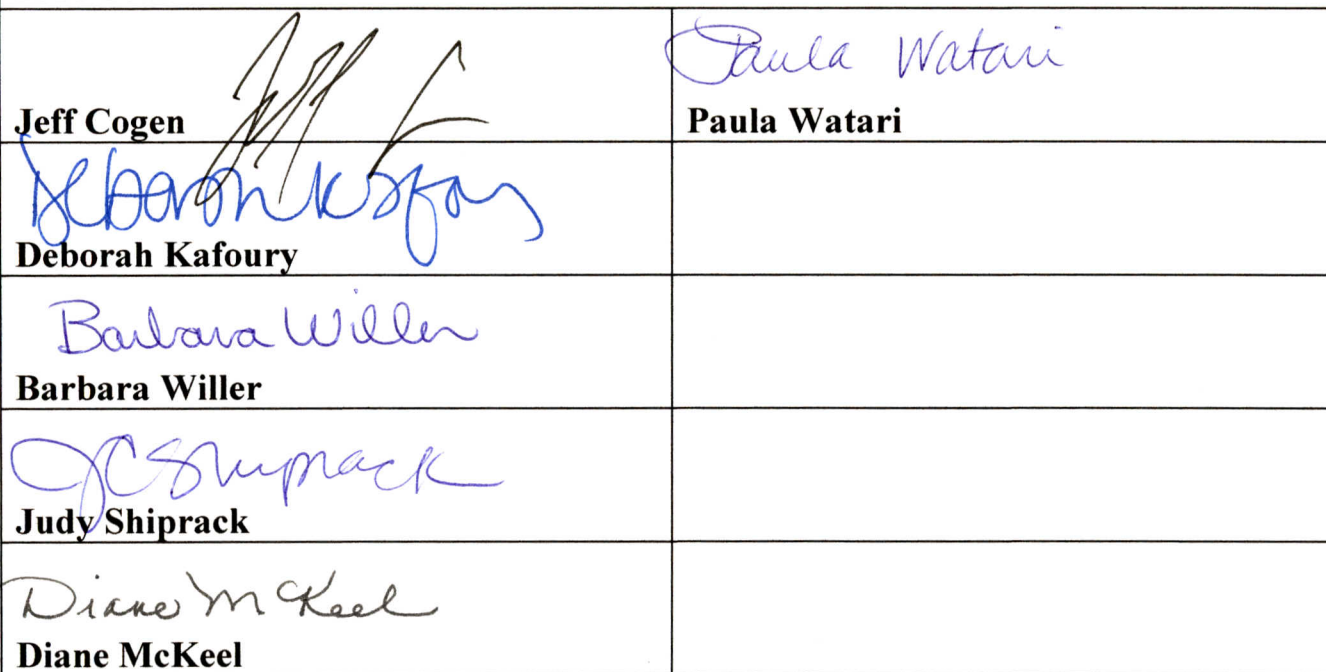 Paula Watari
Jeff Cogen
Paula Watari
Deborah Kafoury
Deborah Kafoury
Barbara Willer
Barbara Willer
JC Shiprack
Judy Shiprack
Diane McKeel
Diane McKeel